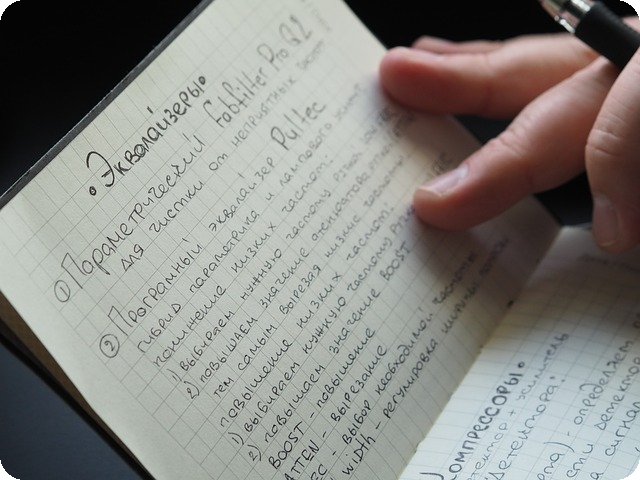 • Эквалайзеры•
① Параметрический Fabfilter Pro Q2
для чистки от неприятных частот
② Програмный эквалайзер Pultec
гибрид параметрика и лампового
понижение низких частот:
1) выбираем нужную частоту ручкой
2) повышаем значение
тем самым вырезая низкие частоты
повышение низких частот:
1) выбираем нужную частоту
2) повышаем значение BOOST
BOOST - повышение
ATTEN - вырезание
EC - выбор необходимой частоты
WIDTH - регулировка ширины
КОМПРЕССОРЫ•
детектор + усилитель
детектора:
- определяет
сигнала